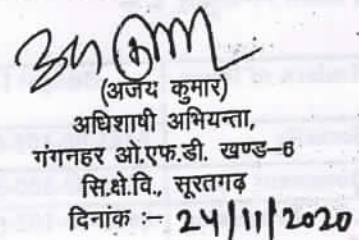 (अजय कुमार)
अधिशाषी अभियन्ता,
गंगनहर ओ.एफ.डी. खण्ड-6
सि.क्षे.वि., सूरतगढ़
दिनांक :- 24/11/2020